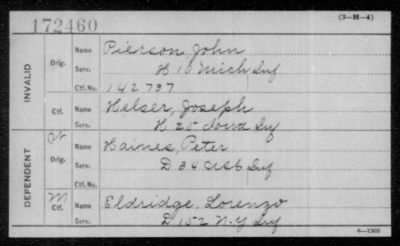 172460
(3—H—4)
INVALID
Orig.
Name Pierson, John
Serv. H 10 Mich Inf
Ctf. No. 142737
Ctf.
Name Helser, Joseph
Serv. H 25 Iowa Inf
DEPENDENT
W
Orig.
Name Haines, Peter
Serv. D 34 Inf
Ctf. No.
M
Ctf.
Name Eldridge, Lorenzo
Serv. D 152 N.Y Inf
6—1302